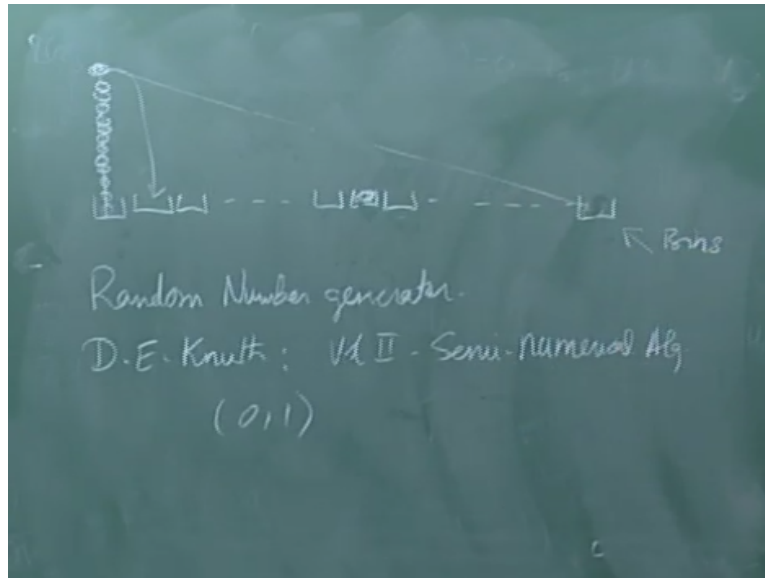 Bins
Random Number generator.
D.E. Knuth: Vol II - Semi-Numerical Alg
(0,1)